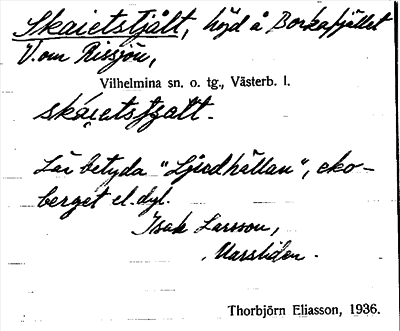 Skaietstjålt, höjd å Borkafjället
V. om Rissjön,
Vilhelmina sn. o. tg., Västerb. l.
skaietstjalt.
Lär betyda "Ljudhällan", eko-
berget el. dyl.
Isak Larsson,
Marsliden.
Thorbjörn Eliasson, 1936.